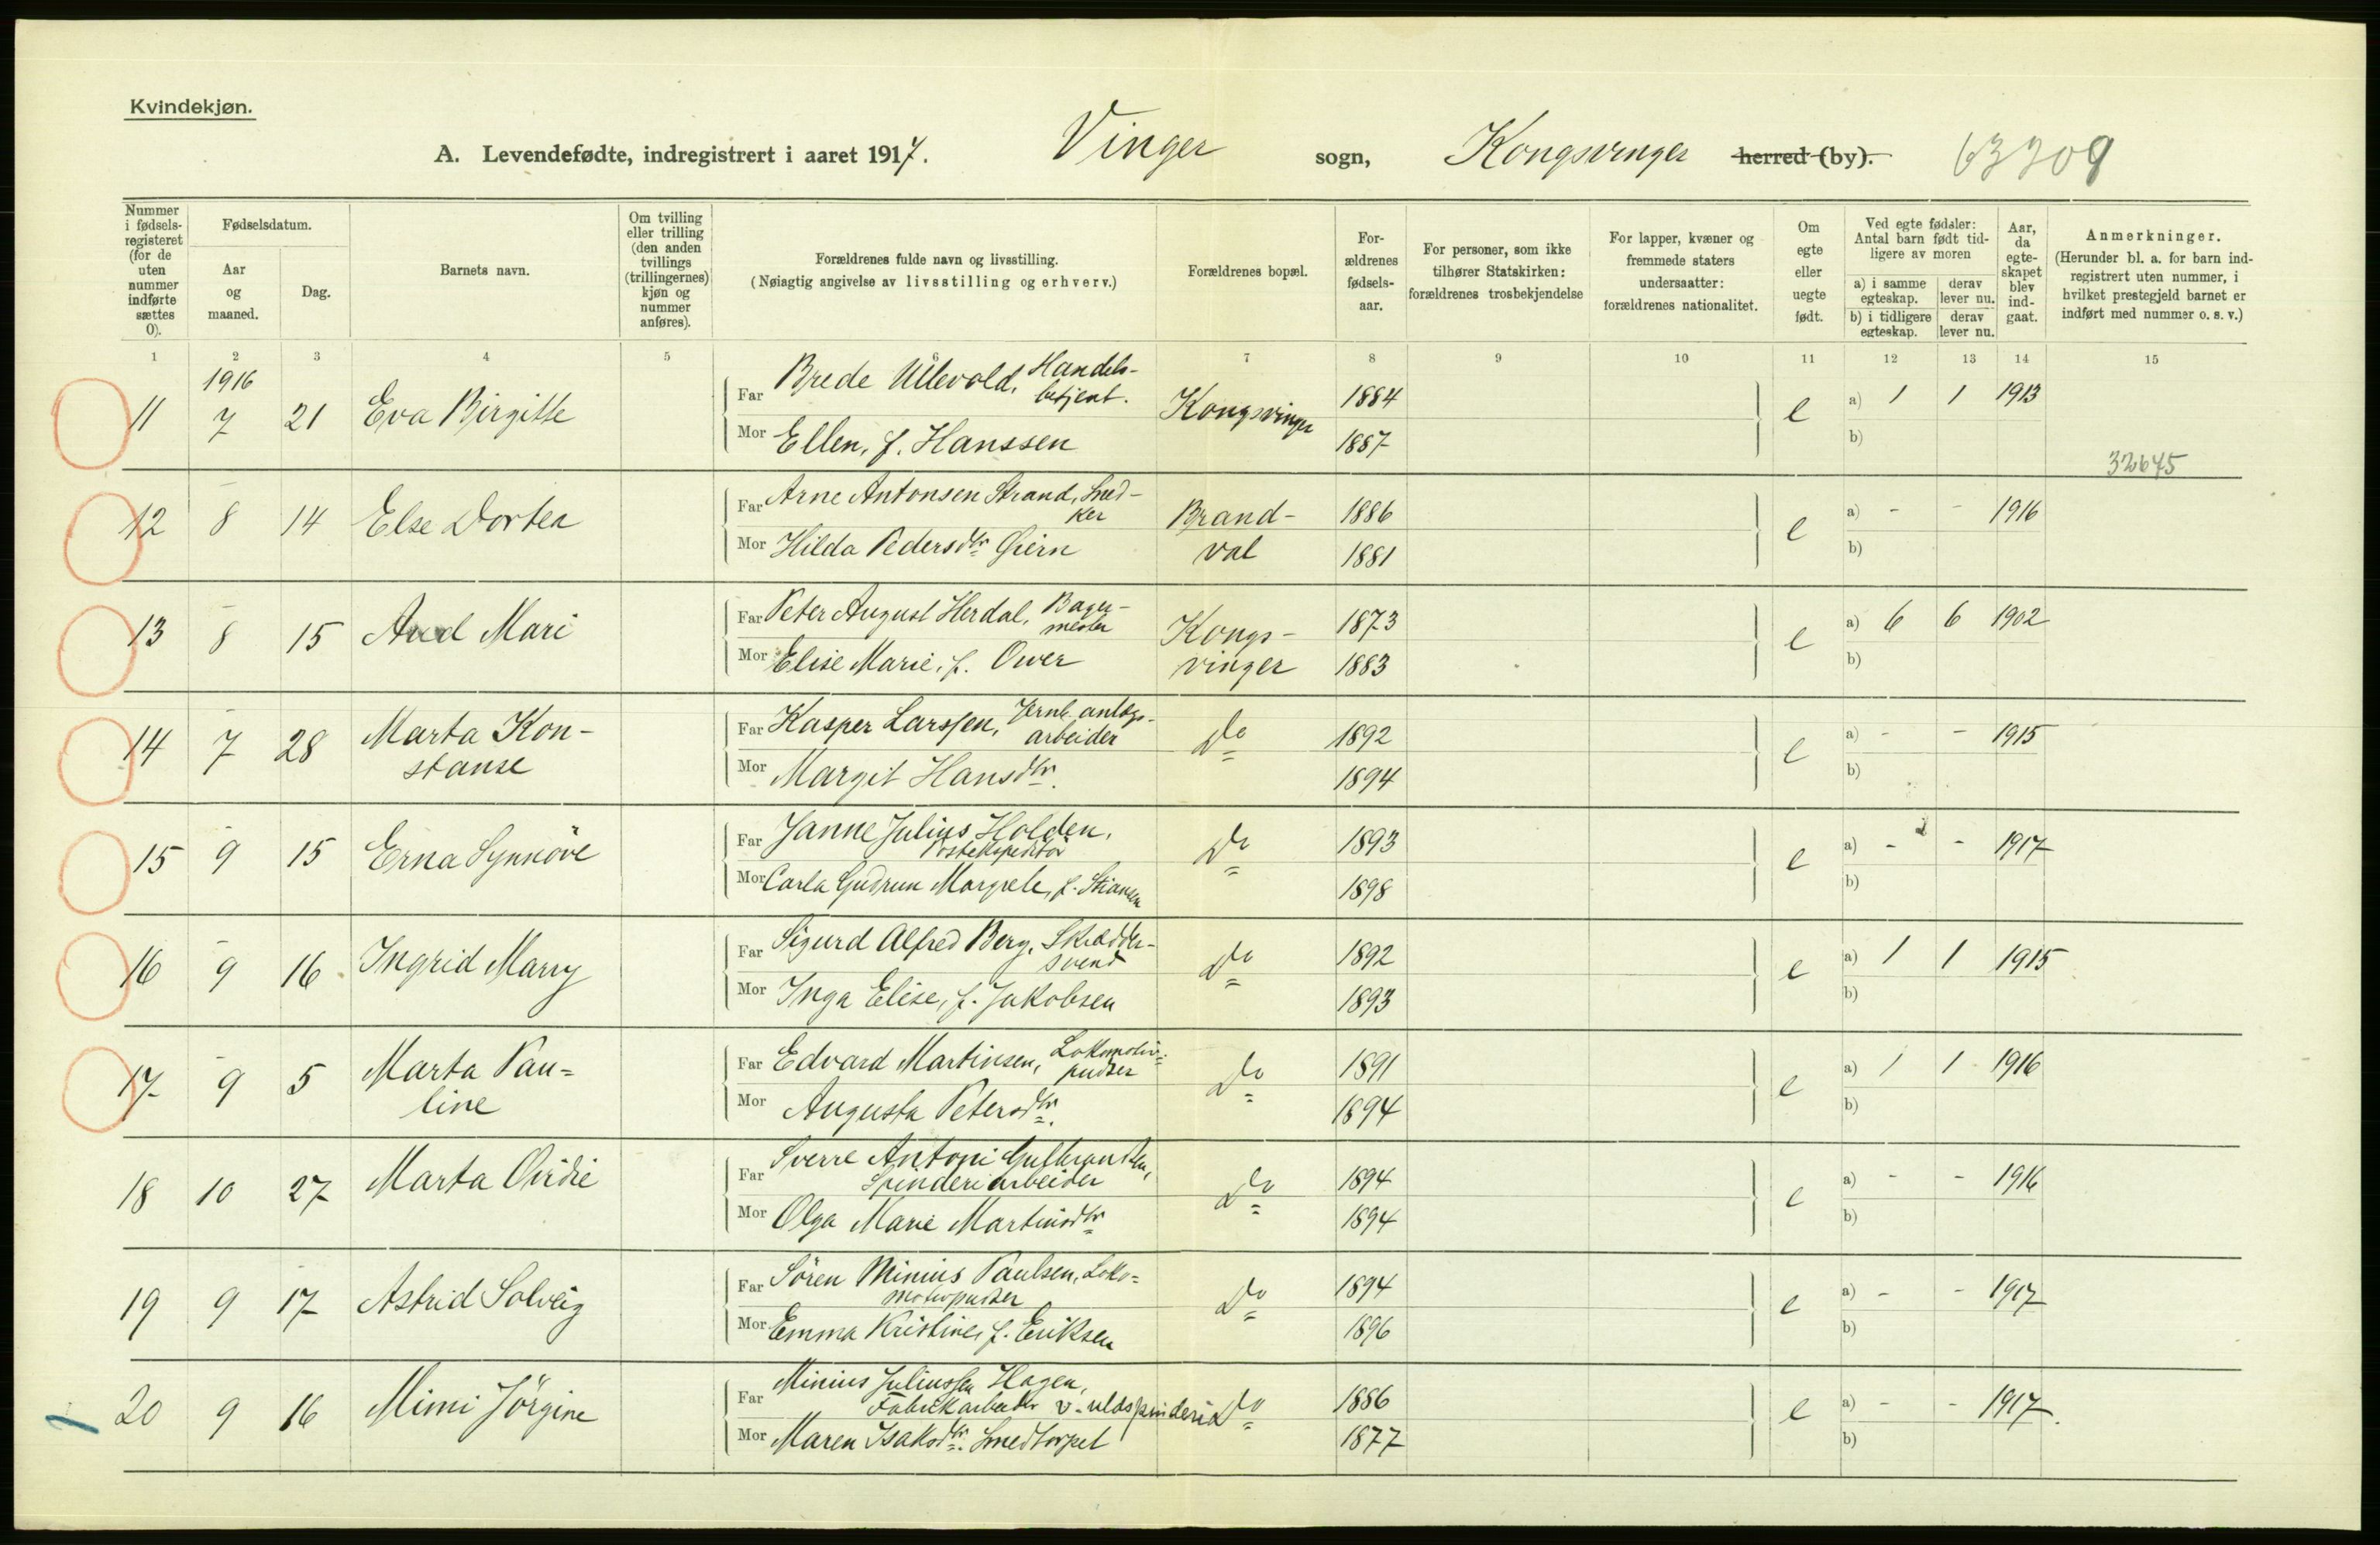 Kvindekjøn.
A. Levendefødte, indregistrert i aaret 1917. Vinger sogn, Kongsvinger herred (by). 63309
Nummer i fødsels-registeret (for de uten nummer indførte sættes 0).
Fødselsdatum.
Aar og maaned.
Dag.
Barnets navn.
Om tvilling eller trilling (den anden tvillings (trillingernes) kjøn og nummer anføres).
Forældrenes fulde navn og livsstilling.
(Nøiagtig angivelse av livsstilling og erhverv.)
Forældrenes bopæl.
For-ældrenes fødsels-aar.
For personer, som ikke tilhører Statskirken: forældrenes trosbekjendelse
For lapper, kvæner og fremmede staters undersaatter: forældrenes nationalitet.
Om egte eller uegte født.
Ved egte fødsler: Antal barn født tid-ligere av moren
a) i samme egteskap. derav lever nu.
b) i tidligere egteskap. derav lever nu.
Aar, da egte-skapet blev ind-gaat.
Anmerkninger.
(Herunder bl. a. for barn ind-registrert uten nummer, i hvilket prestegjeld barnet er indført med nummer o. s. v.)
1 2 3 4 5 6 7 8 9 10 11 12 13 14 15
1916
11 7 21 Eva Birgitte Far Brede Ullevold, Handels-betjent. Kongsvinger 1884 e a) 1 1 1913
Mor Ellen, f. Hanssen 1887 b)
32645
12 8 14 Else Dortea Far Arne Antonsen Strand, Sned-ker Brand- 1886 e a) - - 1916
Mor Hilda Pedersdtr Øiern val 1881 b)
13 8 15 Aud Mari Far Peter August Herdal, Bager-mester Kongs- 1873 e a) 6 6 1902
Mor Elise Marie, f. Over vinger 1883 b)
14 7 28 Marta Kon- Far Kasper Larssen, Jernb. anlegs-arbeider Do 1892 e a) - - 1915
stanse Mor Margit Hansdtr. 1894 b)
15 9 15 Erna Synnöve Far Janne Julius Holden, Postekspeditör Do 1893 e a) - - 1917
Mor Carla Gudrun Margrete, f. Stiansen 1898 b)
16 9 16 Ingrid Marry Far Sigurd Alfred Berg, Skrædder-svend Do 1892 e a) 1 1 1915
Mor Inga Elise, f. Jakobsen 1893 b)
17 9 5 Marta Pau= Far Edvard Martinsen, Lokomotiv=pudser Do 1891 e a) 1 1 1916
line Mor Augusta Petersdtr. 1894 b)
18 10 27 Marta Ovidie Far Sverre Antoni Gulbrandsen, Spinderiarbeider Do 1894 e a) - - 1916
Mor Olga Marie Martinsdtr 1894 b)
19 9 17 Astrid Solveig Far Sören Minius Paulsen, Loko=motivpudser Do 1894 e a) - - 1917
Mor Emma Kristine, f. Eriksen 1896 b)
20 9 16 Mimi Jörgine Far Minius Juliussen Hagen, Fabrikarbeider v. uldspinderi Do 1886 e a) - - 1917.
Mor Maren Isaksdtr. Smedtorpet 1877 b)